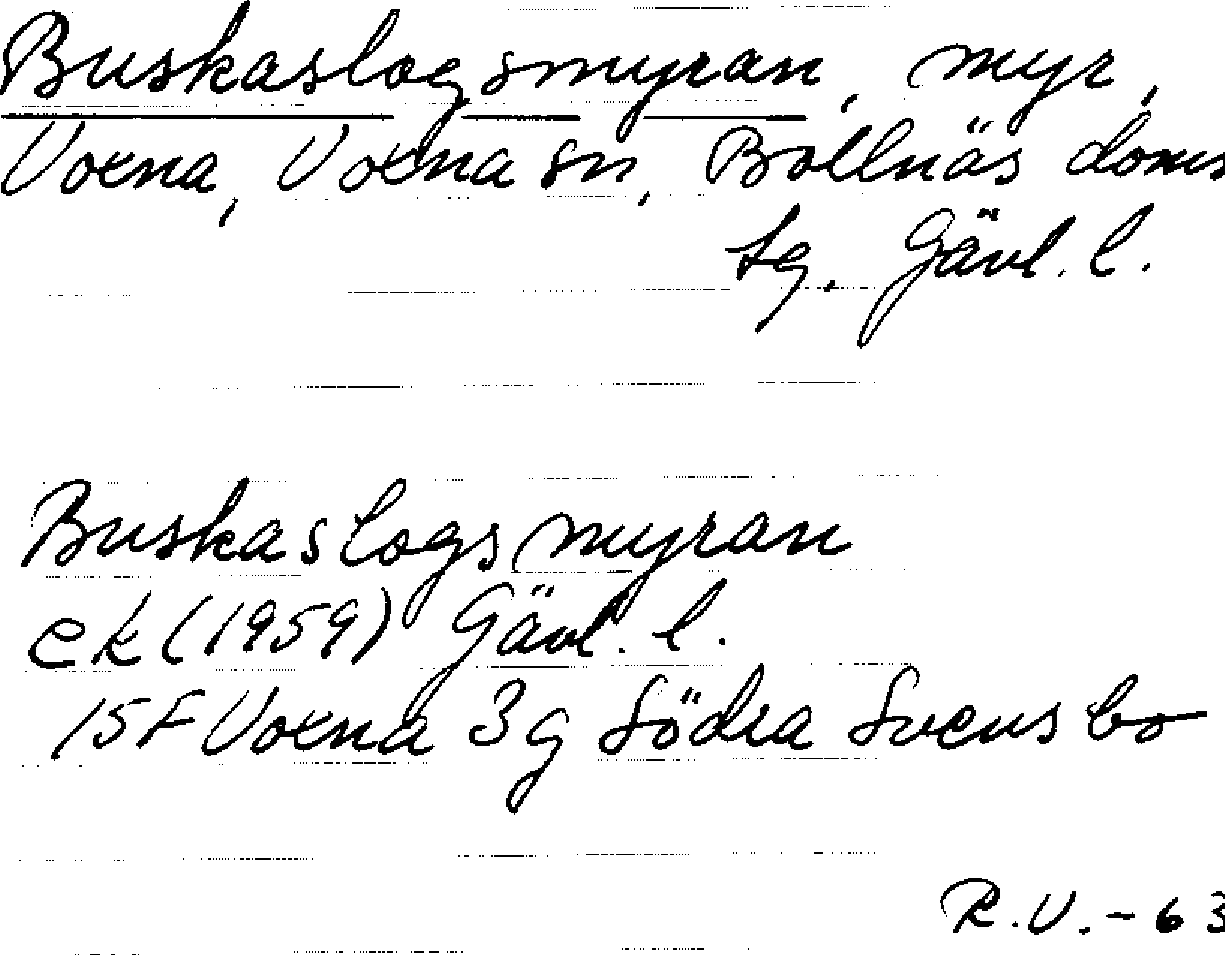 Buskaslogsmyran, myr,
Voxna, Voxna sn, Bollnäs doms
sg. Gävl. l.
Buskaslogsmyran
ek (1959) Gävl. l.
15F Voxna 3g Södra Svensbo
R.V.-63